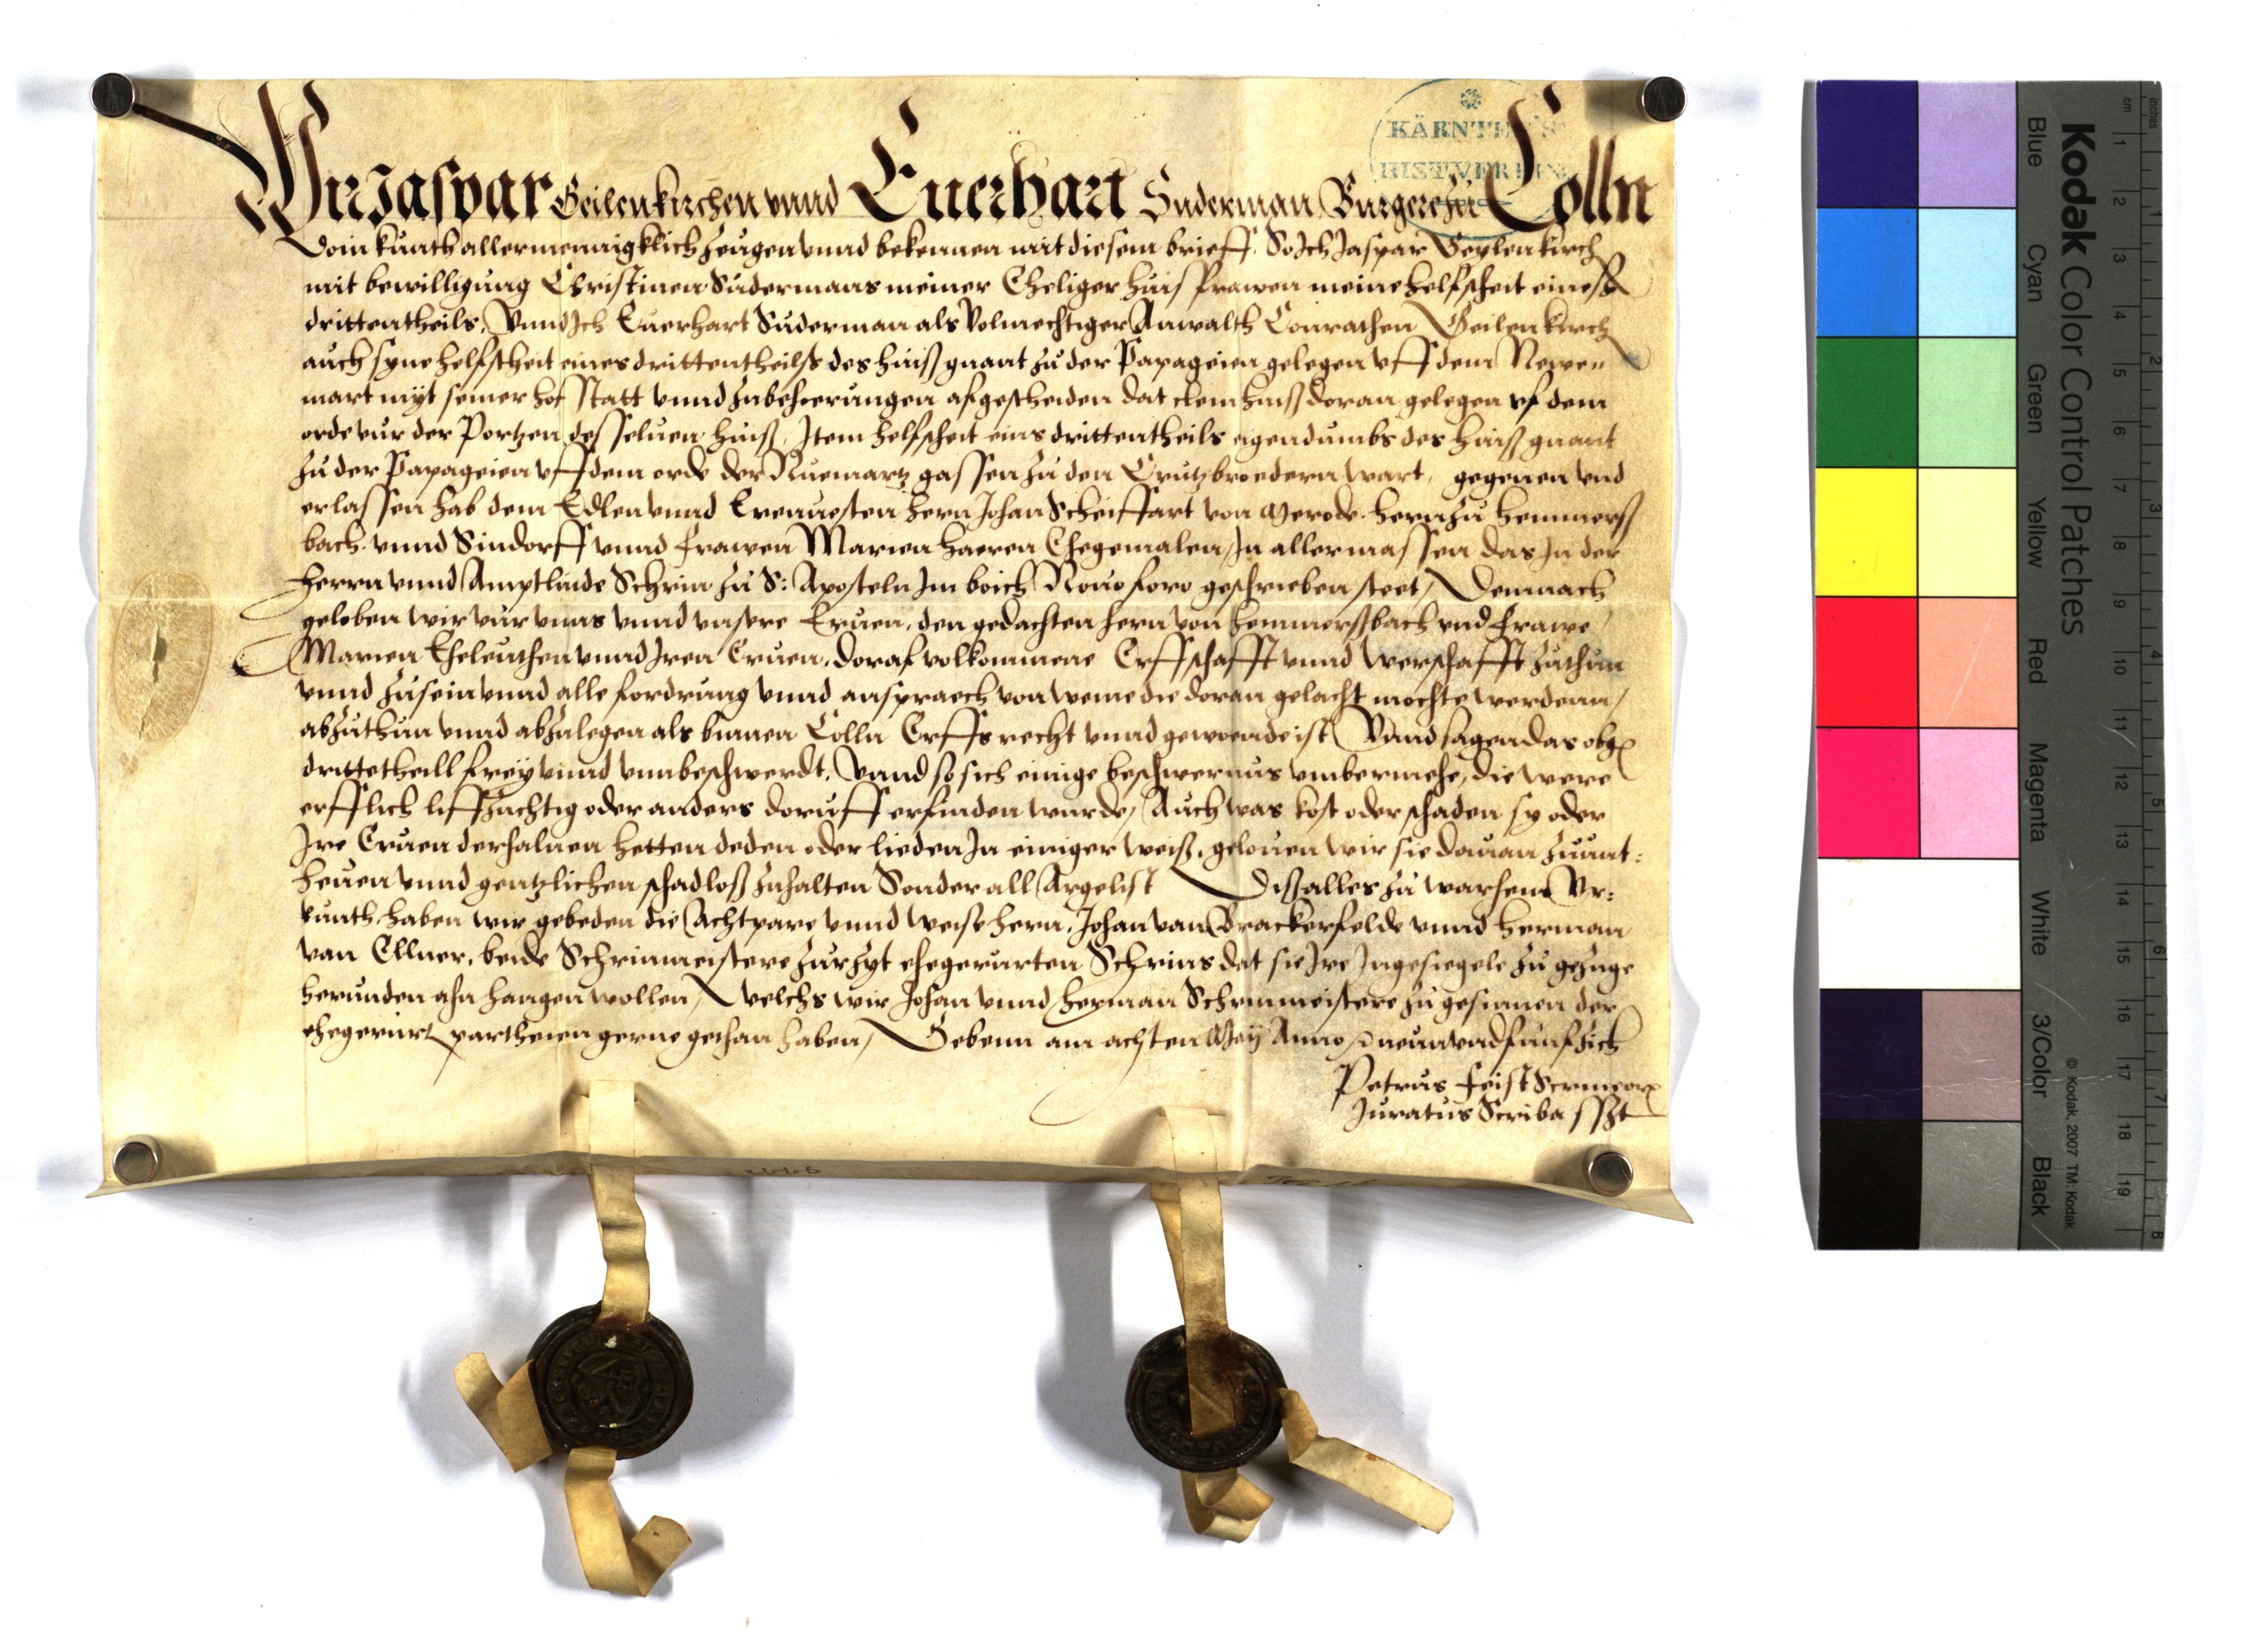 Wir Jaspar Geilenkirchen vnnd Euerhart Suderman Burgere zu Colln
Doin kunth allermennigklich zeugen vnnd bekennen mit diesem brieff. So Ich Jaspar Geylenkirch
mit bewilligung Christinen Sudermans meiner Eheliger huis frawen meine helfscheit eines
drittentheils, Vnnd Ich Euerhart Suderman als Volmechtiger Anwalth Conrathen Geilenkirch
auch syne helfscheit eines drittentheilß des huiß gnant zu der Papageien gelegen vff dem Newen
mart myt seiner hof statt vnnd zubehoerungen afgescheiden dat clein huiß doran gelegen vf dem
orde vur der Portzen desseluen huiß, Item helfscheit eins drittentheils eigendumbs des huiß gnant
zu der Papageien vff dem orde der Nuemartz gassen zu den Crutzbroedern wart, gegeuen vnd
erlassen hab dem Edlen vnnd Erenuesten hern Johan Scheiffart von Merode hern zu Hemmerß
bach vnnd Sindorff vnnd frawen Marien haeren Ehegemalen, In allermassen das In der
herrn vnnd Amptlude Schrin zu S: Aposteln Im boich Nouo foro geschrieben steet, Demnach
geloben wir vur vnns vnnd vnsere Eruen, den gedachten hern von Hemmerßbach vnd frawe
Marien Eheleuthen vnnd Iren Eruen, doraf volkommene Erffschafft vnnd Werschafft zuthun
vnnd zusein vnnd alle fordrung vnnd ansprach von weme die doran gelacht mochte werdenn,
abzuthun vnnd abzulegen als binnen Colln Erffsrecht vnnd gewoende ist Vnnd sagen das obg
drittetheill frey vnnd vnnbeschwerdt, Vnnd so sich einige beschwernus vmbermehe, die were
erfflich liffzuchtig oder anders doruff erfinden wurde, Auch was kost oder schaden sy oder
Ire Eruen derhaluen hetten deden oder lieden In einiger weiß, gelouen wir sie dauan zuunt:
heuen vnnd gentzlichen schadloß zuhalten Sonder all Argelist Diß alles zu warhem Vr:
kunth, haben wir gebeden die Achtpare vnnd weise hern, Johan van Brackerfelde vnnd Herman
van Ellner, beide Schrinmeistere zur zyt ehegerurten Schrins dat sie Ire Ingesiegele zu gezuge
herunden ahn hangen wollen, Welchs wir Johan vnnd Herman Schrinmeistere zu gesinnen der
ehegerurt partheien gerne gethan haben, Gebenn am achten May Anno neun vnd funfzich
Petrus Feist
Juratus Scriba sszt
KÄRNTN
HIST.VEREIN
Kodak Color Control Patches
Blue Cyan Green Yellow Red Magenta White 3/Color Black
© Kodak, 2007 TM: Kodak
cm 1 2 3 4 5 6 7 8 9 10 11 12 13 14 15 16 17 18 19
inches 1 2 3 4 5 6 7 8